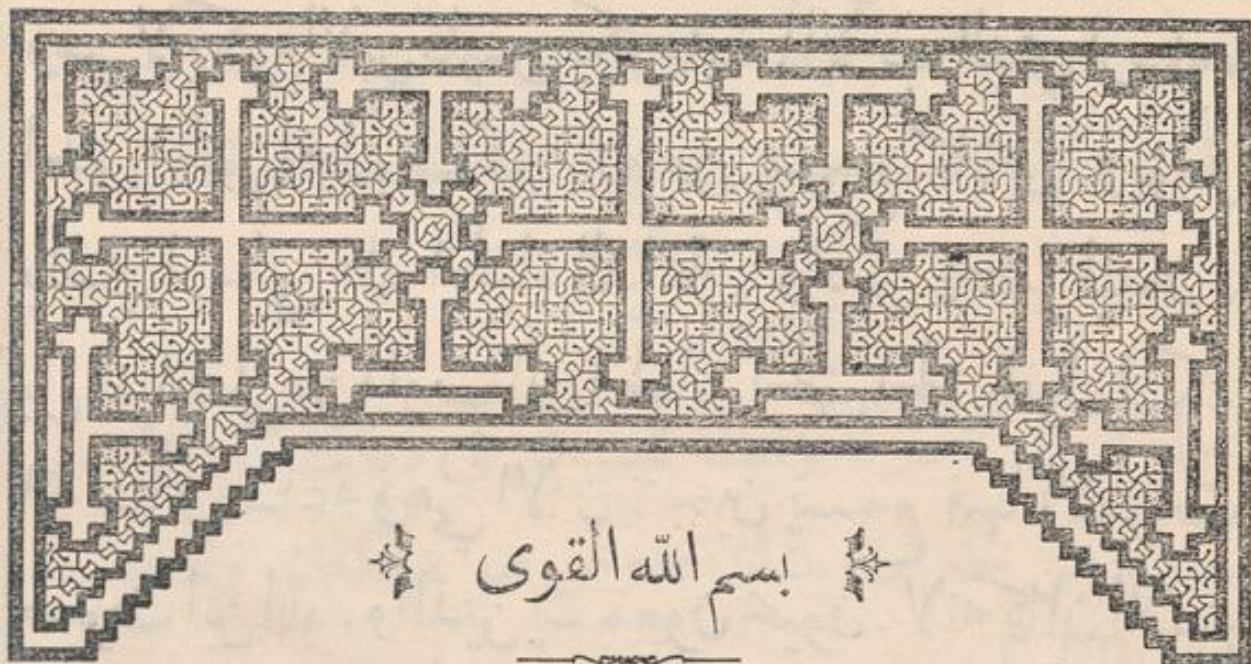 بسم الله القوى